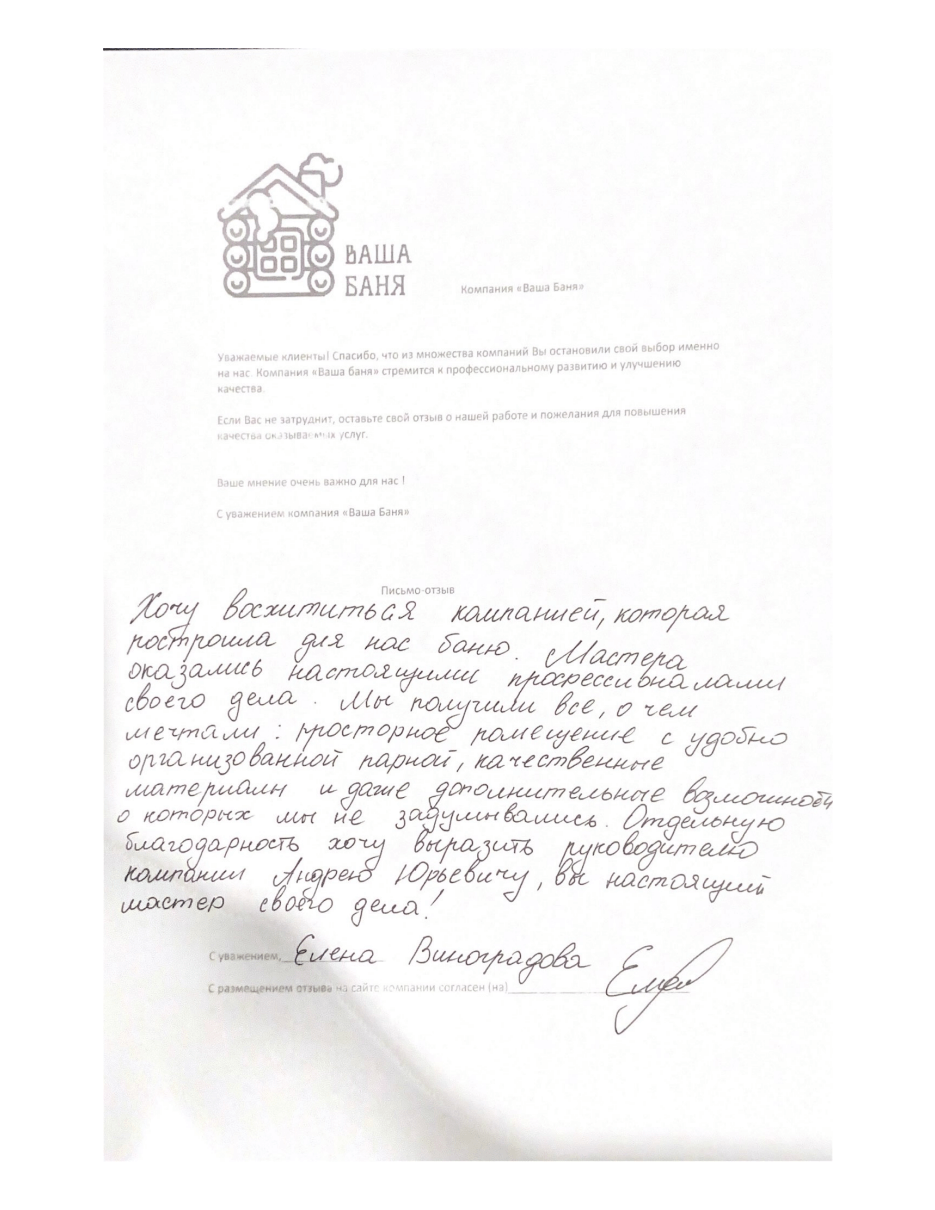 ВАША
БАНЯ
Компания «Ваша Баня»
Уважаемые клиенты! Спасибо, что из множества компаний Вы остановили свой выбор именно
на нас. Компания «Ваша баня» стремится к профессиональному развитию и улучшению
качества.
Если Вас не затруднит, оставьте свой отзыв о нашей работе и пожелания для повышения
качества оказываемых услуг.
Ваше мнение очень важно для нас !
С уважением компания «Ваша Баня»
Письмо-отзыв
Хочу восхититься компанией, которая
построила для нас баню. Мастера
оказались настоящими профессионалами
своего дела. Мы получили все, о чем
мечтали: просторное помещение с удобно
организованной парной, качественные
материалы и даже дополнительные возможности
о которых мы не задумывались. Отдельную
благодарность хочу выразить руководителю
компании Андрею Юрьевичу, вы настоящий
мастер своего дела!
С уважением, Елена Виноградова
С размещением отзыва на сайте компании согласен (на)